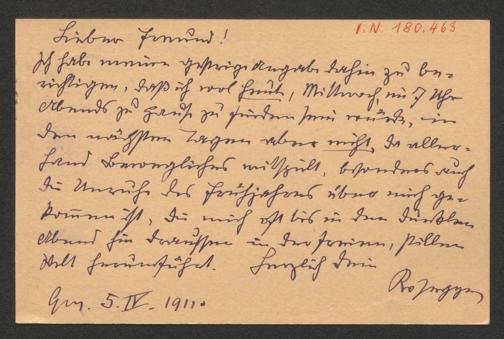 I.N. 180.463
Lieber Freund!
Ich habe meine gestrige Angabe dahin zu be-
richtigen, daß ich wol heute, Mittwoch, um 7 Uhr
Abends zu Hause zu finden sein würde, in
den nächsten Tagen aber nicht, da aller-
hand Bewegliches mitspielt, besonders auch
die Unruhe des Frühjahres über mich ge-
kommen ist, die mich oft bis in den dunklen
Abend hin draussen in der freien, stillen
Welt herumführt. Herzlich Dein
Rosegger
Graz. 5. IV. 1911.